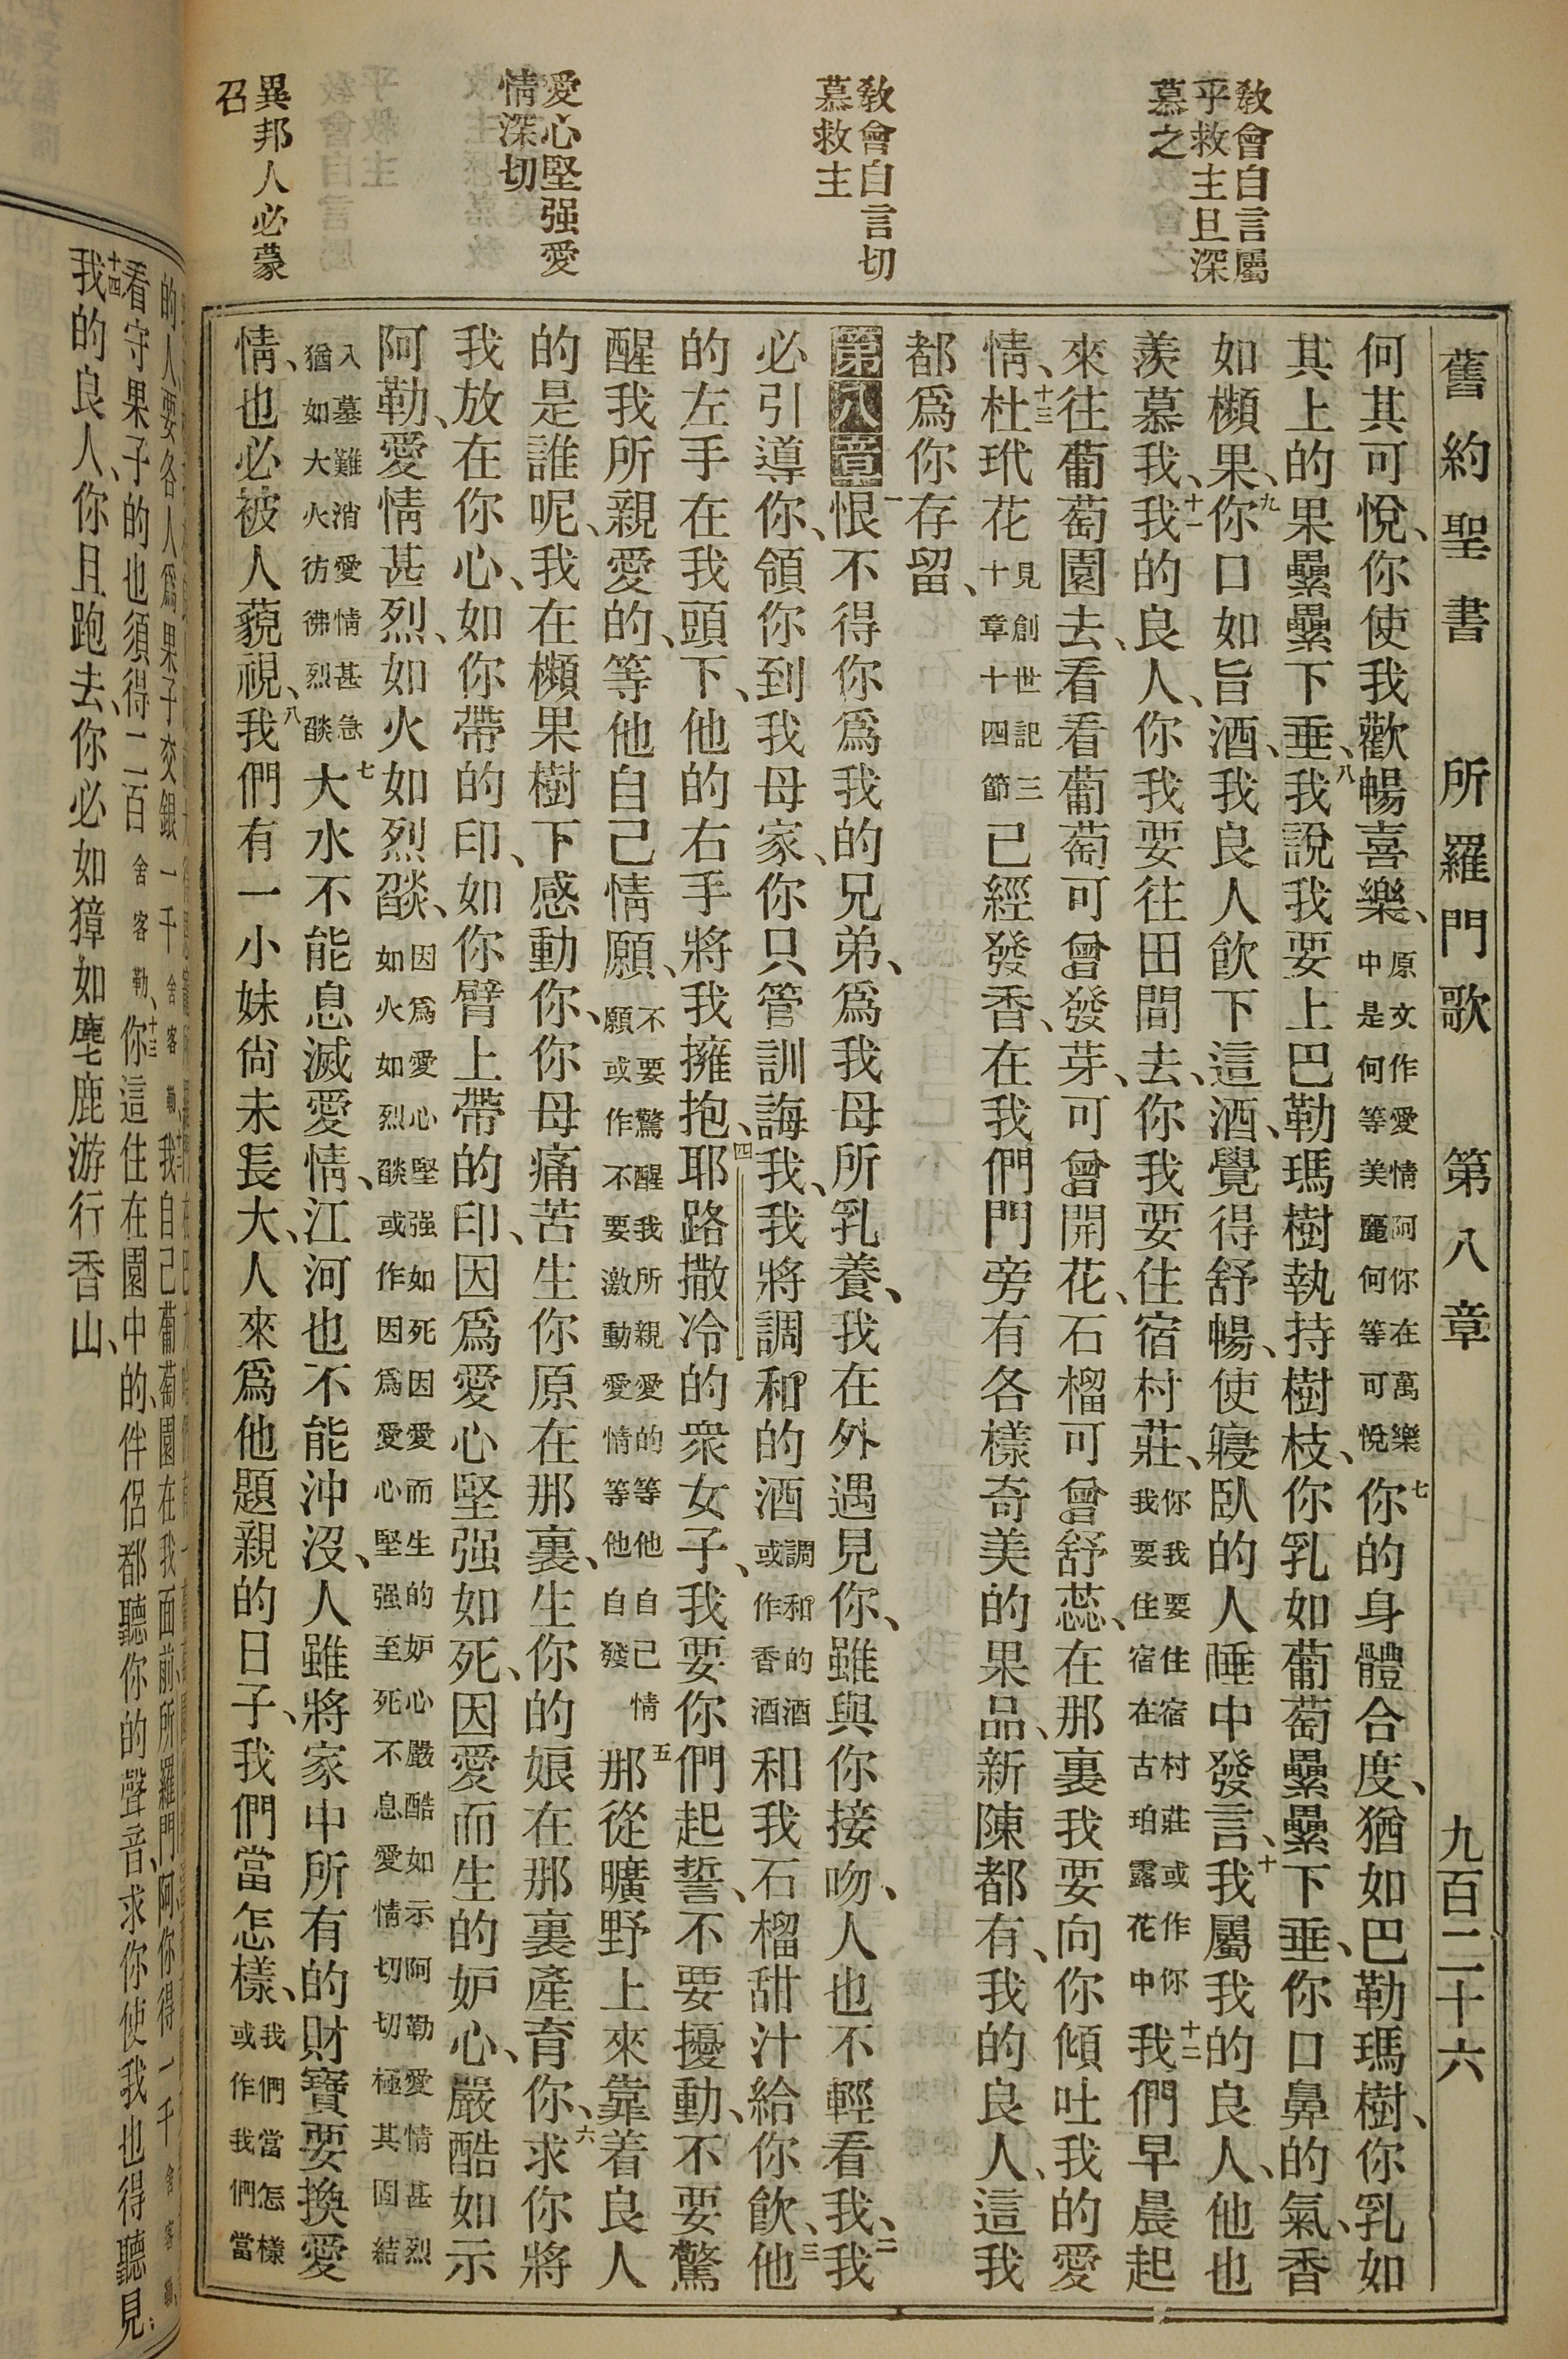 舊約聖書 所羅門歌 第八章 九百二十六
教會自言屬
乎救主且深
慕之
教會自言切
慕救主
愛心堅强愛
情深切
異邦人必蒙
召
何其可悅、你使我歡暢喜樂、原文作愛情阿你在萬樂中是何等美麗何等可悅七你的身體合度、猶如巴勒瑪樹、你乳如
其上的果纍纍下垂、八我說我要上巴勒瑪樹執持樹枝、你乳如葡萄纍纍下垂、你口鼻的氣、香
如櫇果、九你口如旨酒、我良人飲下這酒、覺得舒暢、使寢臥的人睡中發言、十我屬我的良人、他也
羨慕我、十一我的良人、你我要往田間去、你我要住宿村莊、你我要住宿村莊或作你我要住宿在古珀露花中十二我們早晨起
來往葡萄園去、看看葡萄可曾發芽、可曾開花、石榴可曾舒蕊、在那裏我要向你傾吐我的愛
情、十三杜玳花見創世記三十章十四節已經發香、在我們門旁有各樣奇美的果品、新陳都有、我的良人、這我
都爲你存留、
第八章一恨不得你爲我的兄弟、爲我母所乳養、我在外遇見你、雖與你接吻、人也不輕看我、二我
必引導你、領你到我母家、你只管訓誨我、我將調和的酒調和的酒或作香酒和我石榴甜汁給你飲、三他
的左手在我頭下、他的右手將我擁抱、四耶路撒冷的衆女子、我要你們起誓、不要擾動、不要驚
醒我所親愛的、等他自己情願、不要驚醒我所親愛的等他自己情願或作不要激動愛情等他自發五那從曠野上來靠着良人
的是誰呢、我在櫇果樹下感動你、你母痛苦生你原在那裏、生你的娘在那裏產育你、六求你將
我放在你心、如你帶的印、如你臂上帶的印、因爲愛心堅强如死、因愛而生的妒心、嚴酷如示
阿勒、愛情甚烈、如火如烈燄、因爲愛心堅强如死因愛而生的妒心嚴酷如示阿勒愛情甚烈如火如烈燄或作因爲愛心堅强至死不息愛情切切極其固結
入墓難消愛情甚急猶如大火彷彿烈燄七大水不能息滅愛情、江河也不能沖沒、人雖將家中所有的財寶要換愛
情、也必被人藐視、八我們有一小妹尙未長大、人來爲他題親的日子、我們當怎樣、我們當怎樣或作我們當
的人要各人爲果子交銀一千舍客勒、我自己葡萄園在我面前、所羅門阿、你得一千舍客勒、
看守果子的也須得二百舍客勒、十三你這住在園中的、伴侶都聽你的聲音、求你使我也得聽見、
十四我的良人、你且跑去、你必如獐如麈鹿游行香山、